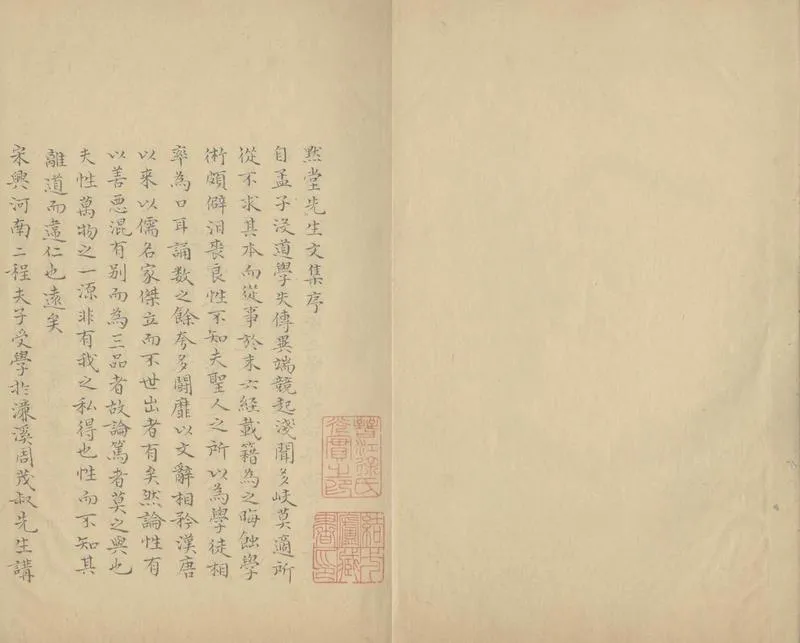 默堂先生文集序
自孟子沒道學失傳異端競起淺聞多岐莫適所
從不求其本而從事於末六經載籍為之晦蝕學
術頗僻汨喪良性不知夫聖人之所以為學徒相
率為口耳誦數之餘夸多鬪靡以文辭相矜漢唐
以來以儒名家傑立而不世出者有矣然論性有
以善惡混有別而為三品者故論篤者莫之與也
夫性萬物之一源非有我之私得也性而不知其
離道而違仁也遠矣
宋興河南二程夫子受學於濂溪周茂叔先生講
晉江徐氏